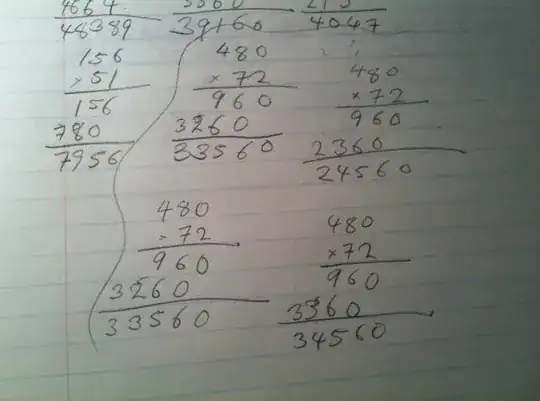 48389
39160
4047
156
× 51
156
780
7956
480
× 72
960
3260
33560
480
× 72
960
2360
24560
480
× 72
960
3260
33560
480
× 72
960
3360
34560